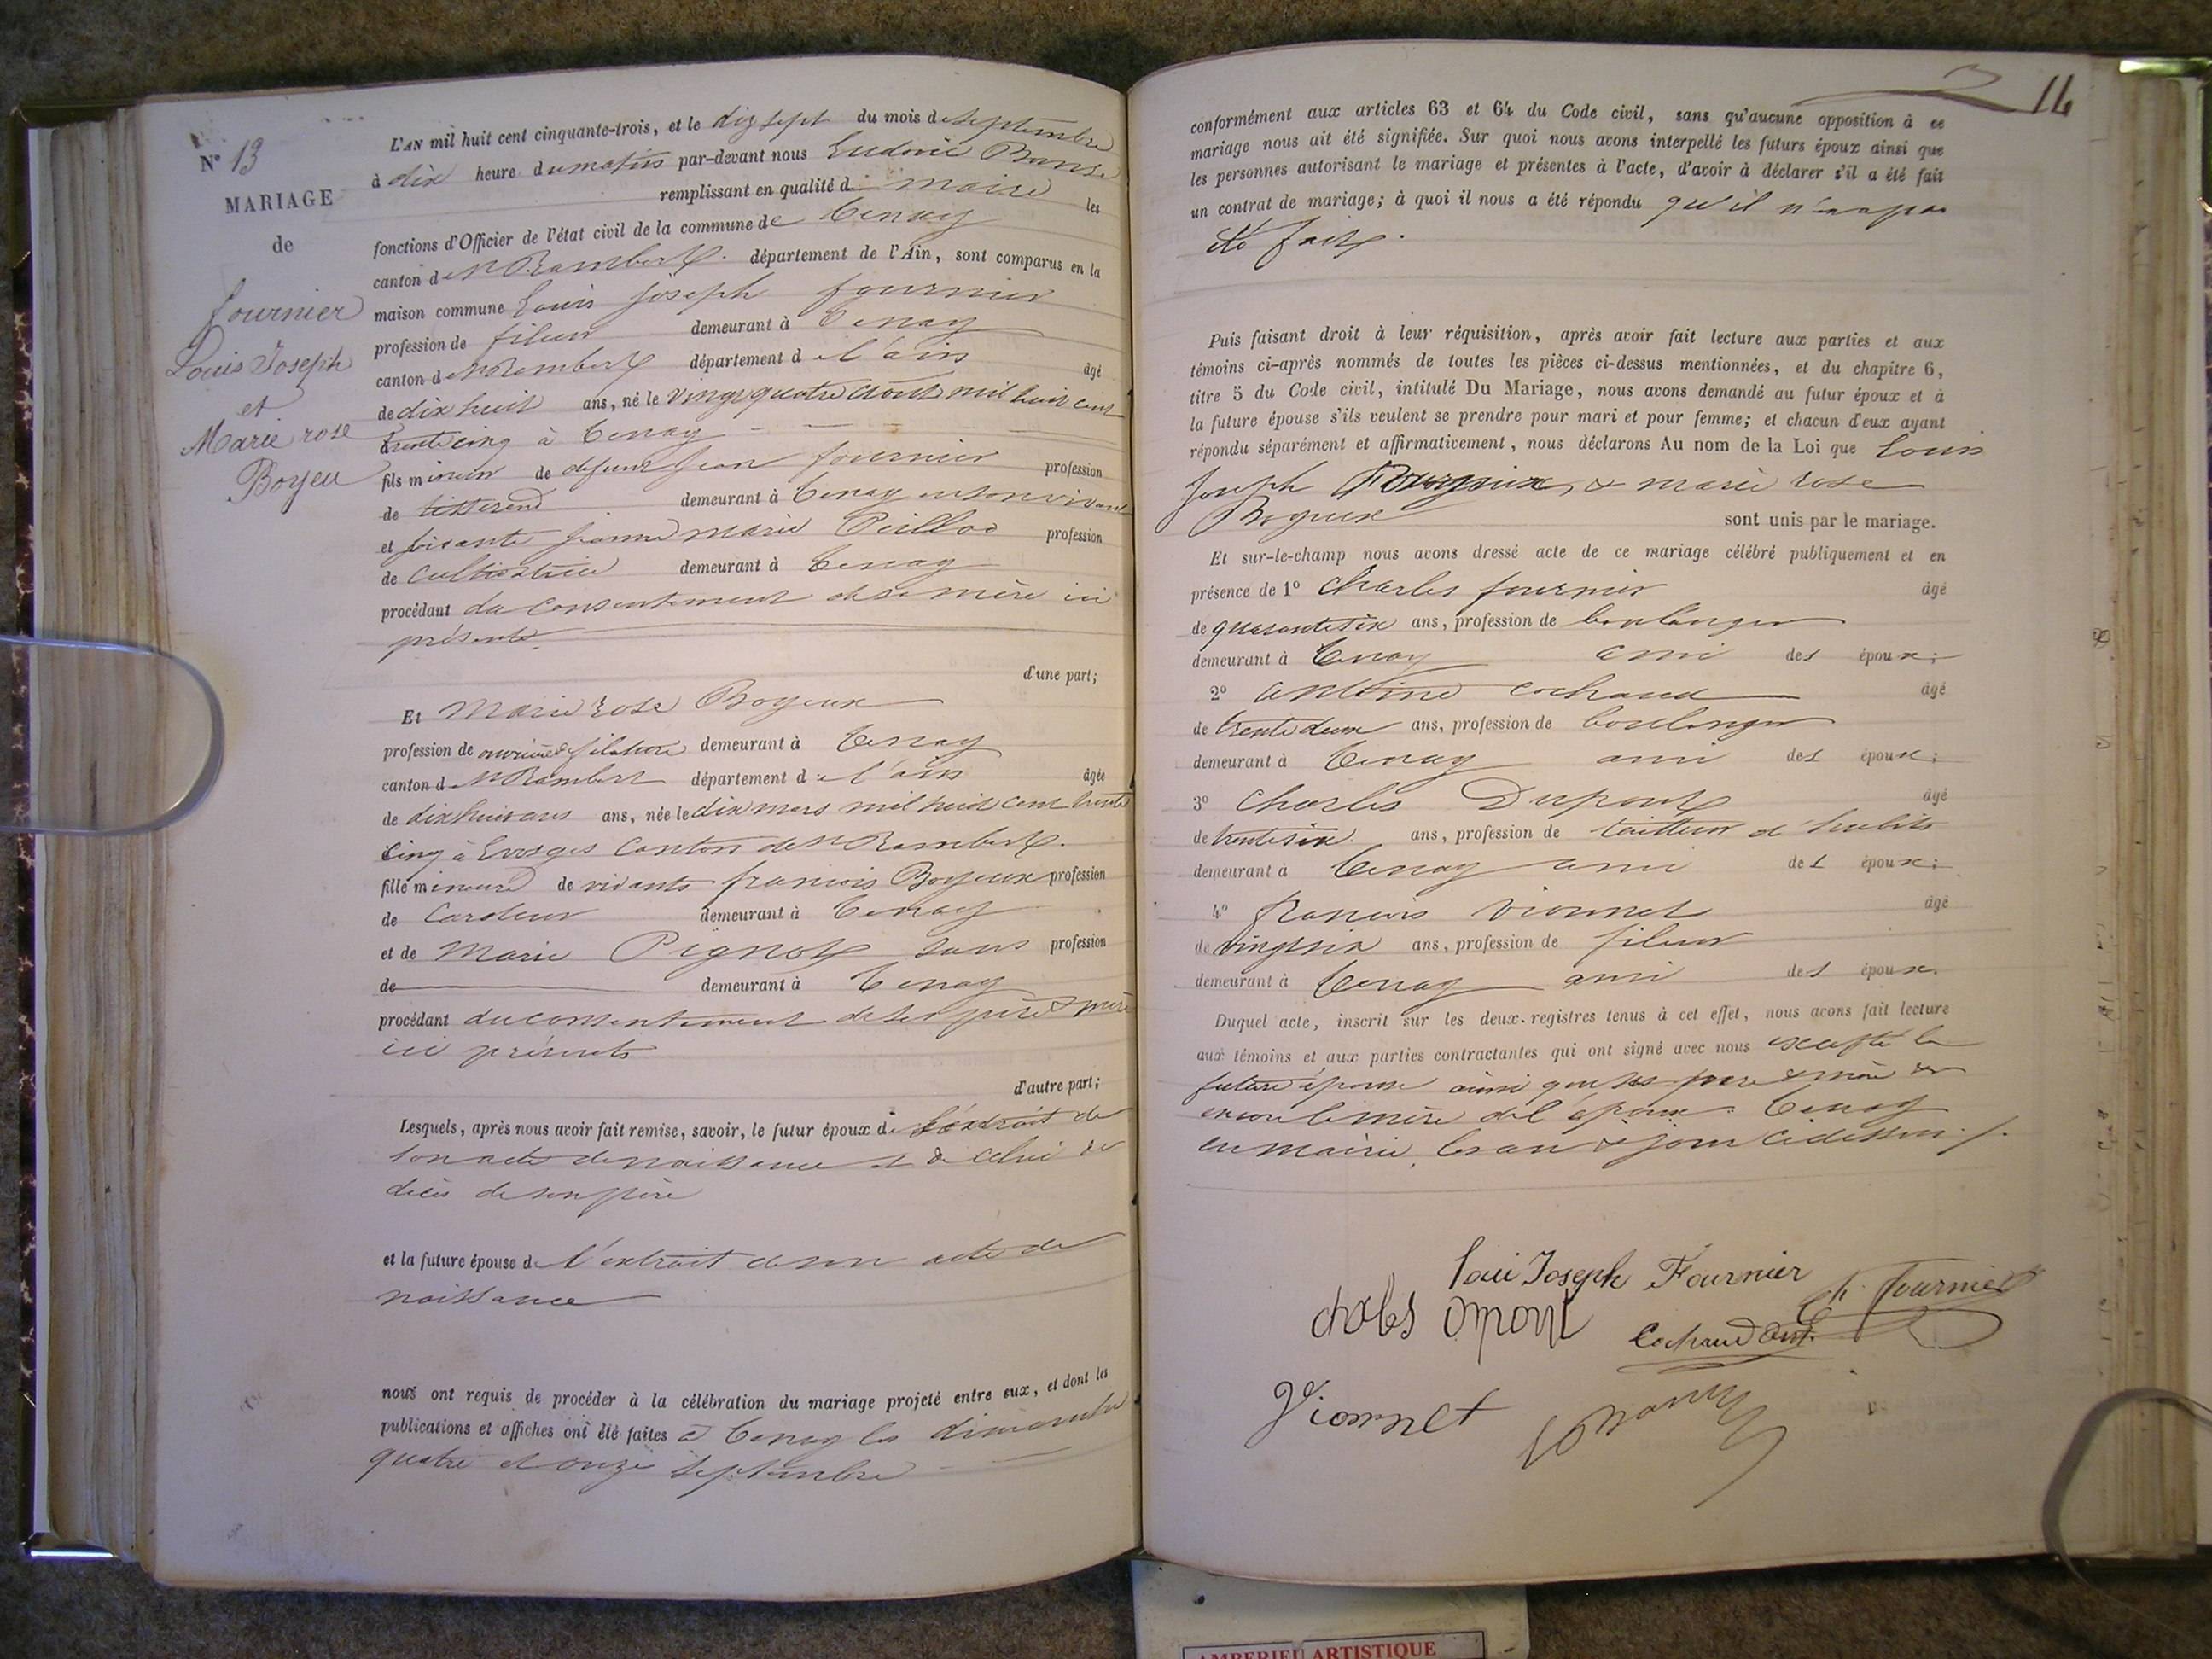 N° 13
MARIAGE
de
fournier
Louis Joseph
et
Marie rose
Boyeu
L'AN mil huit cent cinquante-trois, et le dix sept du mois de septembre
à dix heure du matin par-devant nous Ludovic
remplissant en qualité de maire les
fonctions d'Officier de l'état civil de la commune de Tenay
canton de St Rambert département de l'Ain, sont comparus en la
maison commune Louis joseph fournier
profession de fileur demeurant à Tenay
canton de St Rambert département de l'ain âgé
de dix huit ans, né le vingt quatre août mil huit cent
trente cinq à Tenay
fils mineur de defunt jean fournier profession
de tisserend demeurant à Tenay en son vivant
et vivante jeanne marie profession
de cultivatrice demeurant à Tenay
procédant du consentement de sa mère ici
présente
d'une part;
Et Marie rose Boyeux
profession de ouvrière filature demeurant à Tenay
canton de St Rambert département de l'ain âgée
de dix huit ans ans, née le dix mars mil huit cent trente
cinq à Evosges canton de St Rambert
fille mineure de vivants francois Boyeux profession
de cardeur demeurant à Tenay
et de Marie Pignot sans profession
de demeurant à Tenay
procédant du consentement de ses père & mère
ici présents
d'autre part;
Lesquels, après nous avoir fait remise, savoir, le futur époux de l'extrait de
son acte de naissance & de celui de
décès de son père
et la future épouse de l'extrait de son acte de
naissance
nous ont requis de procéder à la célébration du mariage projeté entre eux, et dont les
publications et affiches ont été faites à Tenay les dimanche
quatre et onze septembre
14
conformément aux articles 63 et 64 du Code civil, sans qu'aucune opposition à ce
mariage nous ait été signifiée. Sur quoi nous avons interpellé les futurs époux ainsi que
les personnes autorisant le mariage et présentes à l'acte, d'avoir à déclarer s'il a été fait
un contrat de mariage; à quoi il nous a été répondu qu'il n'en a pas
été fait.
Puis faisant droit à leur réquisition, après avoir fait lecture aux parties et aux
témoins ci-après nommés de toutes les pièces ci-dessus mentionnées, et du chapitre 6,
titre 5 du Code civil, intitulé Du Mariage, nous avons demandé au futur époux et à
la future épouse s'ils veulent se prendre pour mari et pour femme; et chacun d'eux ayant
répondu séparément et affirmativement, nous déclarons Au nom de la Loi que Louis
Joseph & marie rose
Boyeux sont unis par le mariage.
Et sur-le-champ nous avons dressé acte de ce mariage célébré publiquement et en
présence de 1° Charles fournier âgé
de quarante six ans, profession de boulanger
demeurant à Tenay ami des époux;
2° Antoine Cochaud âgé
de trente deux ans, profession de boulanger
demeurant à Tenay ami des époux;
3° Charles Dupont âgé
de trente six ans, profession de tailleur d'habits
demeurant à Tenay ami des époux;
4° francois vionnet âgé
de vingt six ans, profession de fileur
demeurant à Tenay ami des époux.
Duquel acte, inscrit sur les deux registres tenus à cet effet, nous avons fait lecture
aux témoins et aux parties contractantes qui ont signé avec nous excepté la
future épouse ainsi que ses père & mère &
encore la mère de l'époux. Tenay
en mairie, les an & jour ci dessus
loui Joseph Fournier
Ch. fournier
Cochaud Ant.
Vionnet
AMBERIEU ARTISTIQUE